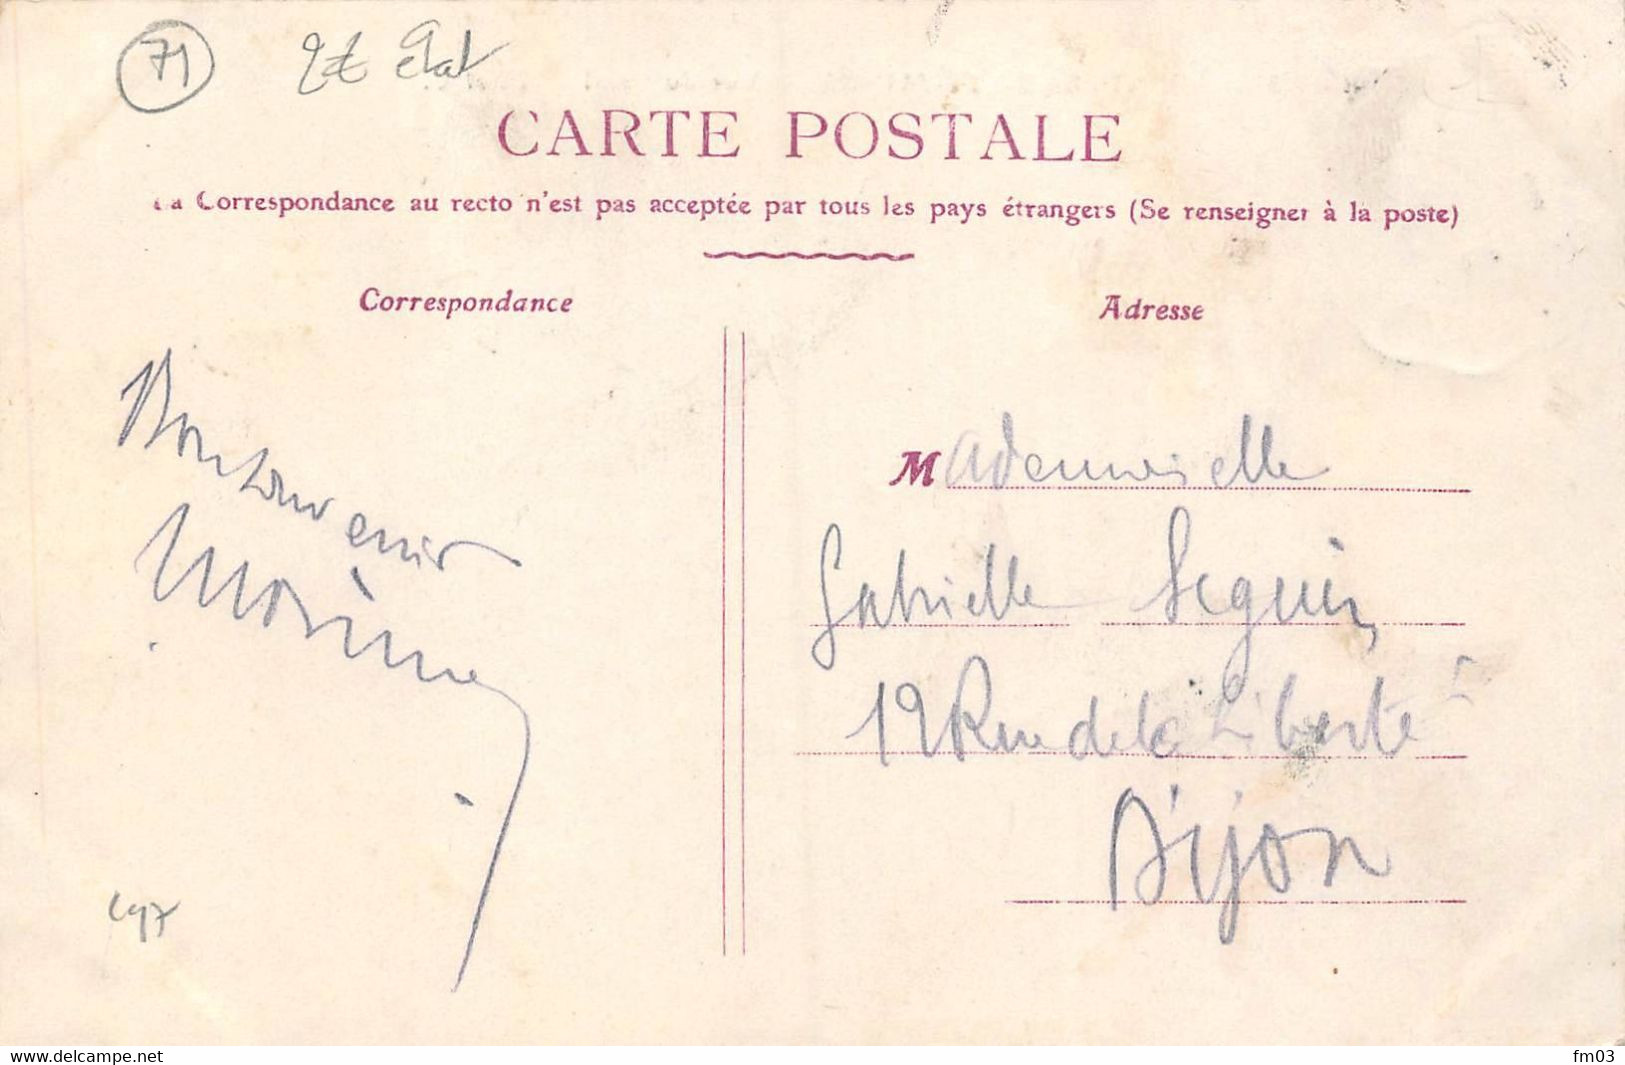 71 état
CARTE POSTALE
La Correspondance au recto n'est pas acceptée par tous les pays étrangers (Se renseigner à la poste)
Correspondance
Adresse
Bon souvenir
Mademoiselle
Gabrielle Seguin
19 Rue de la Liberté
Dijon
www.delcampe.net
fm03